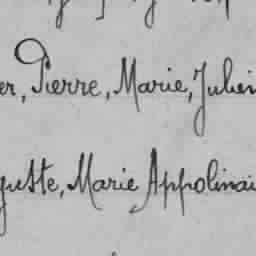 er, Pierre, Marie, Julien
guste, Marie Appolinai